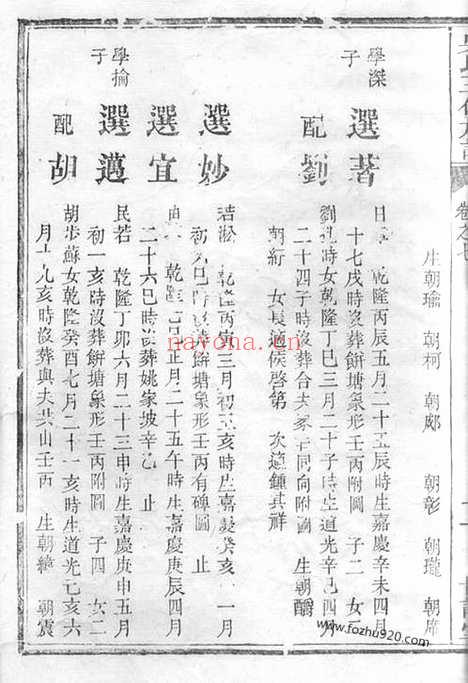 生朝瑜 朝柯 朝郕 朝彰 朝瓏 朝席
學深子
選著
日 乾隆丙辰五月二十五辰時生嘉慶辛未四月
十七戌時沒葬餅塘象形壬丙附圖 子二 女二
配劉
劉孔時女乾隆丁巳三月二十子時生道光辛巳四月
二十四子時沒葬合夫 同向附圖 生朝
朝 女長適侯啓第 次適鍾其祥
選妙
乾隆丙寅三月初 亥時生嘉慶癸亥 一月
初九巳時沒葬餅塘象形壬丙有碑圖 止
選宜
乾隆 正月二十五午時生嘉慶庚辰四月
二十六巳時沒葬姚家坡辛乙 止
學掄子
選邁
民若 乾隆丁卯六月二十三申時生嘉慶庚申五月
初一亥時沒葬餅塘象形壬丙附圖 子四 女二
配胡
胡步蘇女乾隆癸酉七月二十一亥時生道光己亥六
月十九亥時沒葬與夫共山壬丙 生朝 朝震
navona.cn
www.fozhu920.com